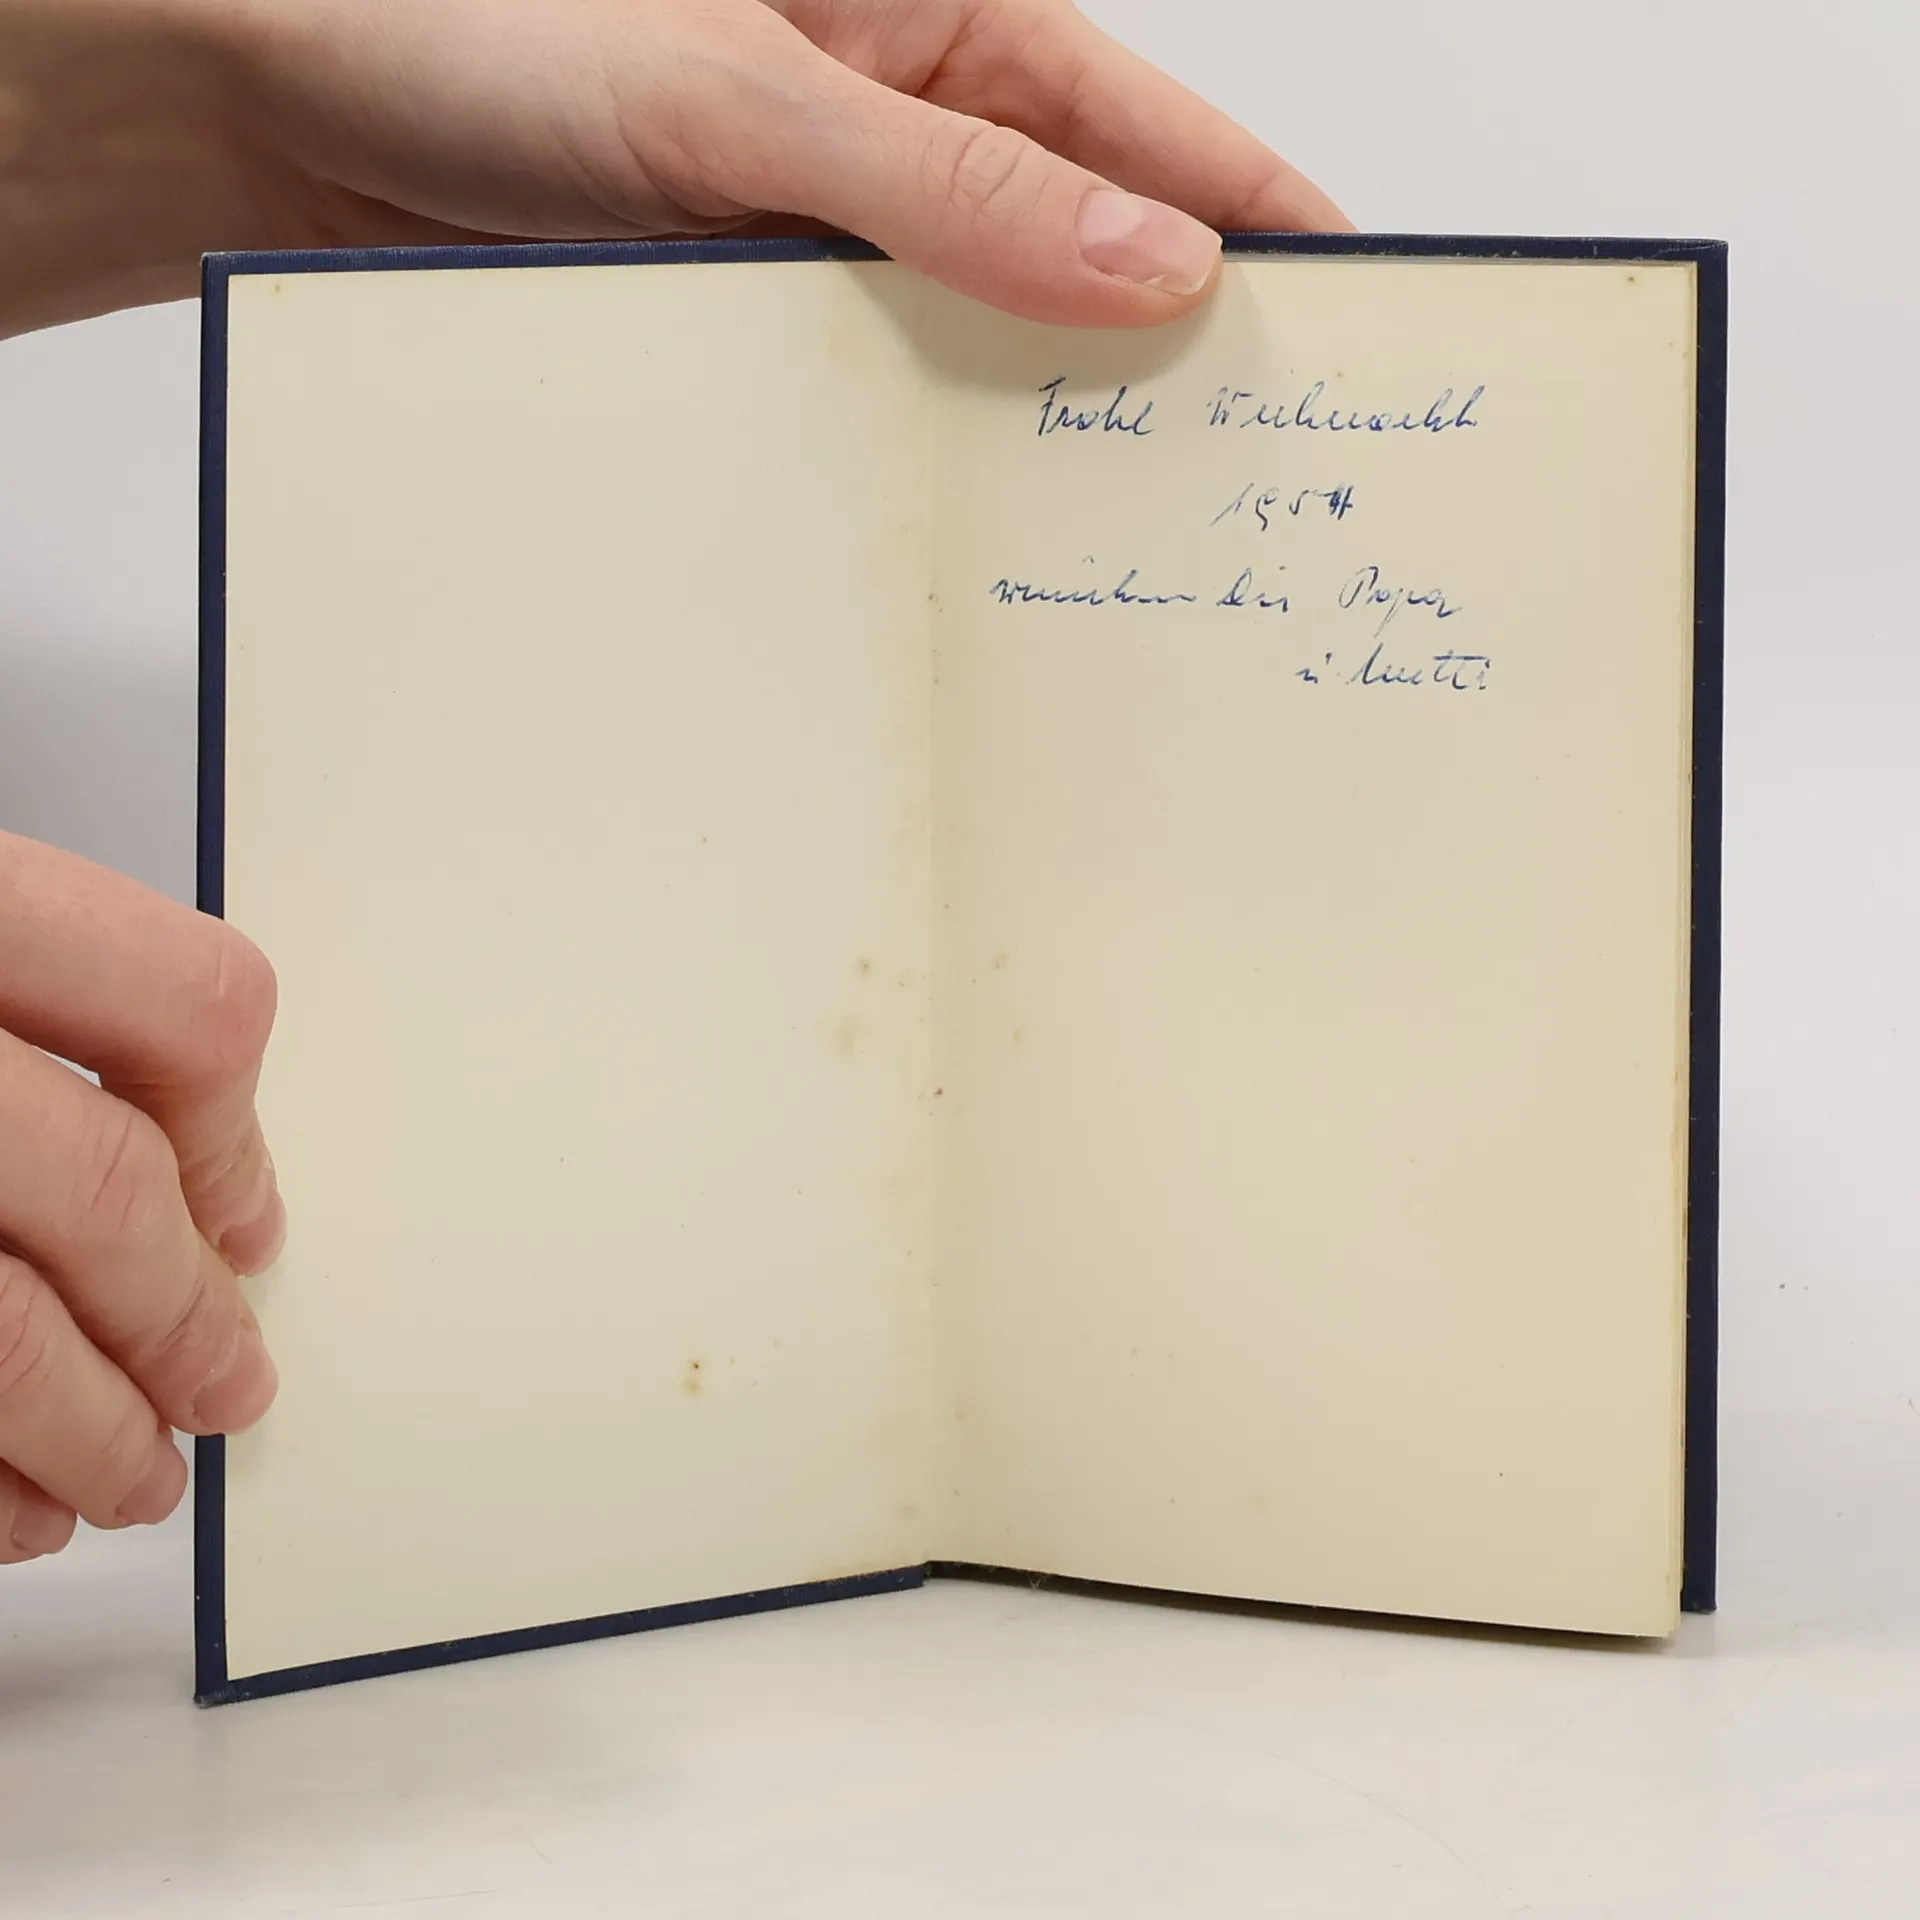 Frohe Weihnacht
1954
wünschen Dir Papa
u Mutti